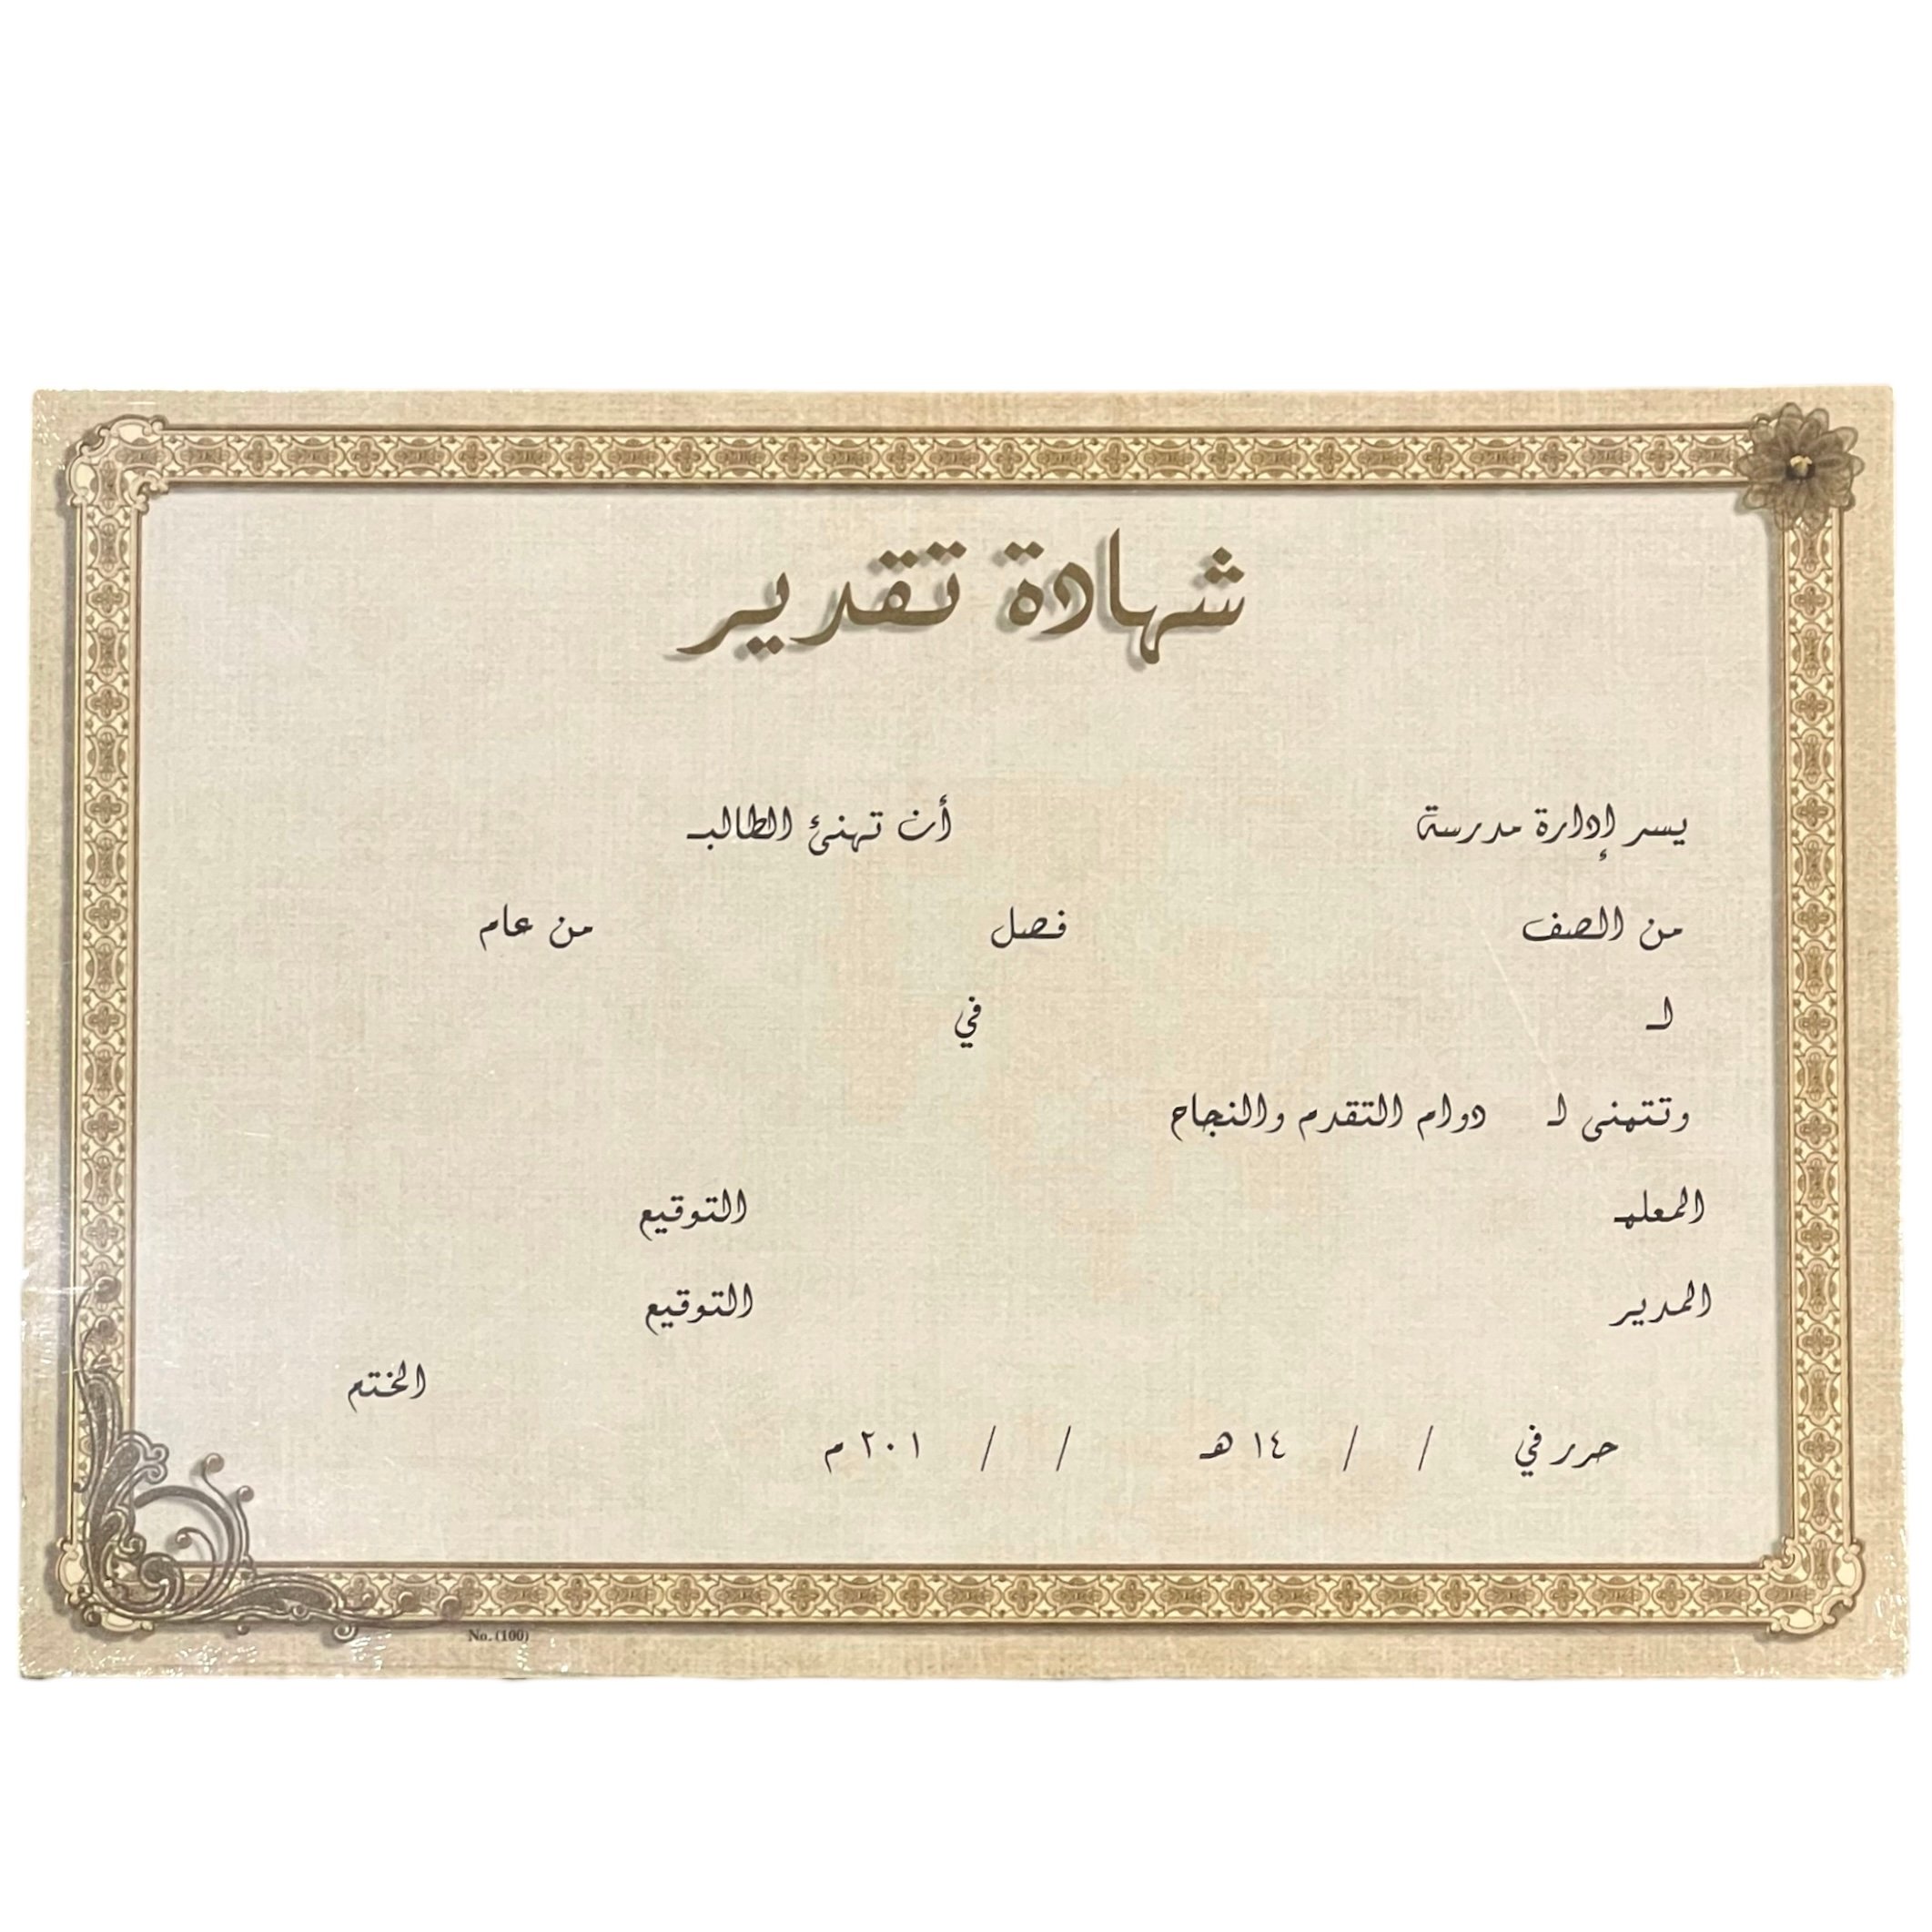 شهادة تقدير
يسر إدارة مدرسة أن تهنئ الطالبـ
من الصف فصل من عام
لـ في
وتتمنى لـ دوام التقدم والنجاح
المعلمـ التوقيع
المدير التوقيع
الختم
حرر في / / ١٤ هـ / / ٢٠١ م
No. (100)